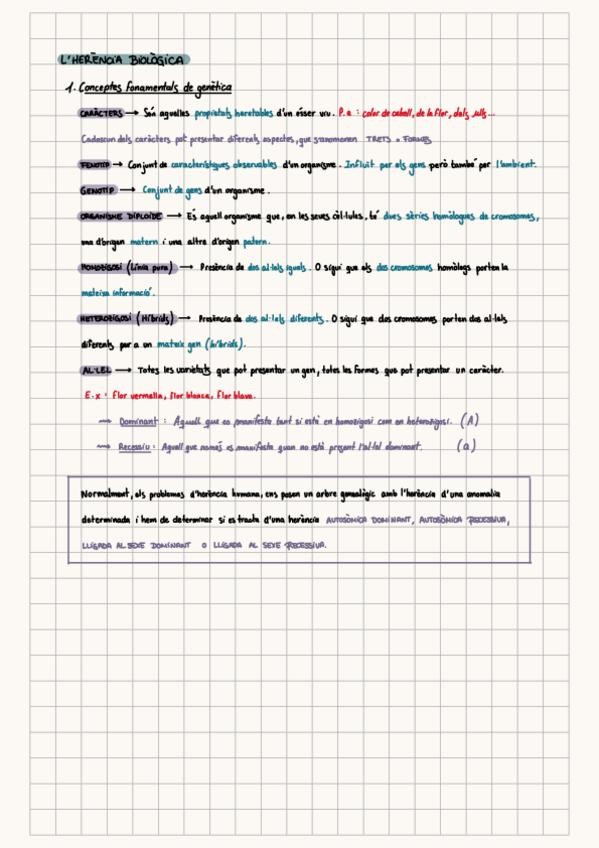 L'HERÈNCIA BIOLÒGICA
1. Conceptes fonamentals de genètica
CARÀCTERS → Són aquelles propietats heretables d'un ésser viu. P.e : color de cabell, de la flor, dels ulls...
Cadascun dels caràcters pot presentar diferents aspectes, que s'anomenen TRETS o FORMES
FENOTIP → Conjunt de característiques observables d'un organisme. Influït per els gens però també per l'ambient.
GENOTIP → Conjunt de gens d'un organisme.
ORGANISME DIPLOIDE → És aquell organisme que, en les seves cèl·lules, té dues sèries homòlogues de cromosomes,
una d'origen matern i una altre d'origen patern.
HOMOZIGOSI (Línia pura) → Presència de dos al·lels iguals. O sigui que els dos cromosomes homòlegs porten la
mateixa informació.
HETEROZIGOSI (Híbrids) → Presència de dos al·lels diferents. O sigui que dos cromosomes porten dos al·lels
diferents per a un mateix gen (híbrids).
AL·LEL → Totes les varietats que pot presentar un gen, totes les formes que pot presentar un caràcter.
E.x : flor vermella, flor blanca, flor blava.
→ Dominant : Aquell que es manifesta tant si està en homozigosi com en heterozigosi. (A)
→ Recessiu : Aquell que només es manifesta quan no està present l'al·lel dominant. (a)
Normalment, els problemes d'herència humana, ens posen un arbre genealògic amb l'herència d'una anomalia
determinada i hem de determinar si es tracta d'una herència AUTOSÒMICA DOMINANT, AUTOSÒMICA RECESSIVA,
LLIGADA AL SEXE DOMINANT O LLIGADA AL SEXE RECESSIVA.